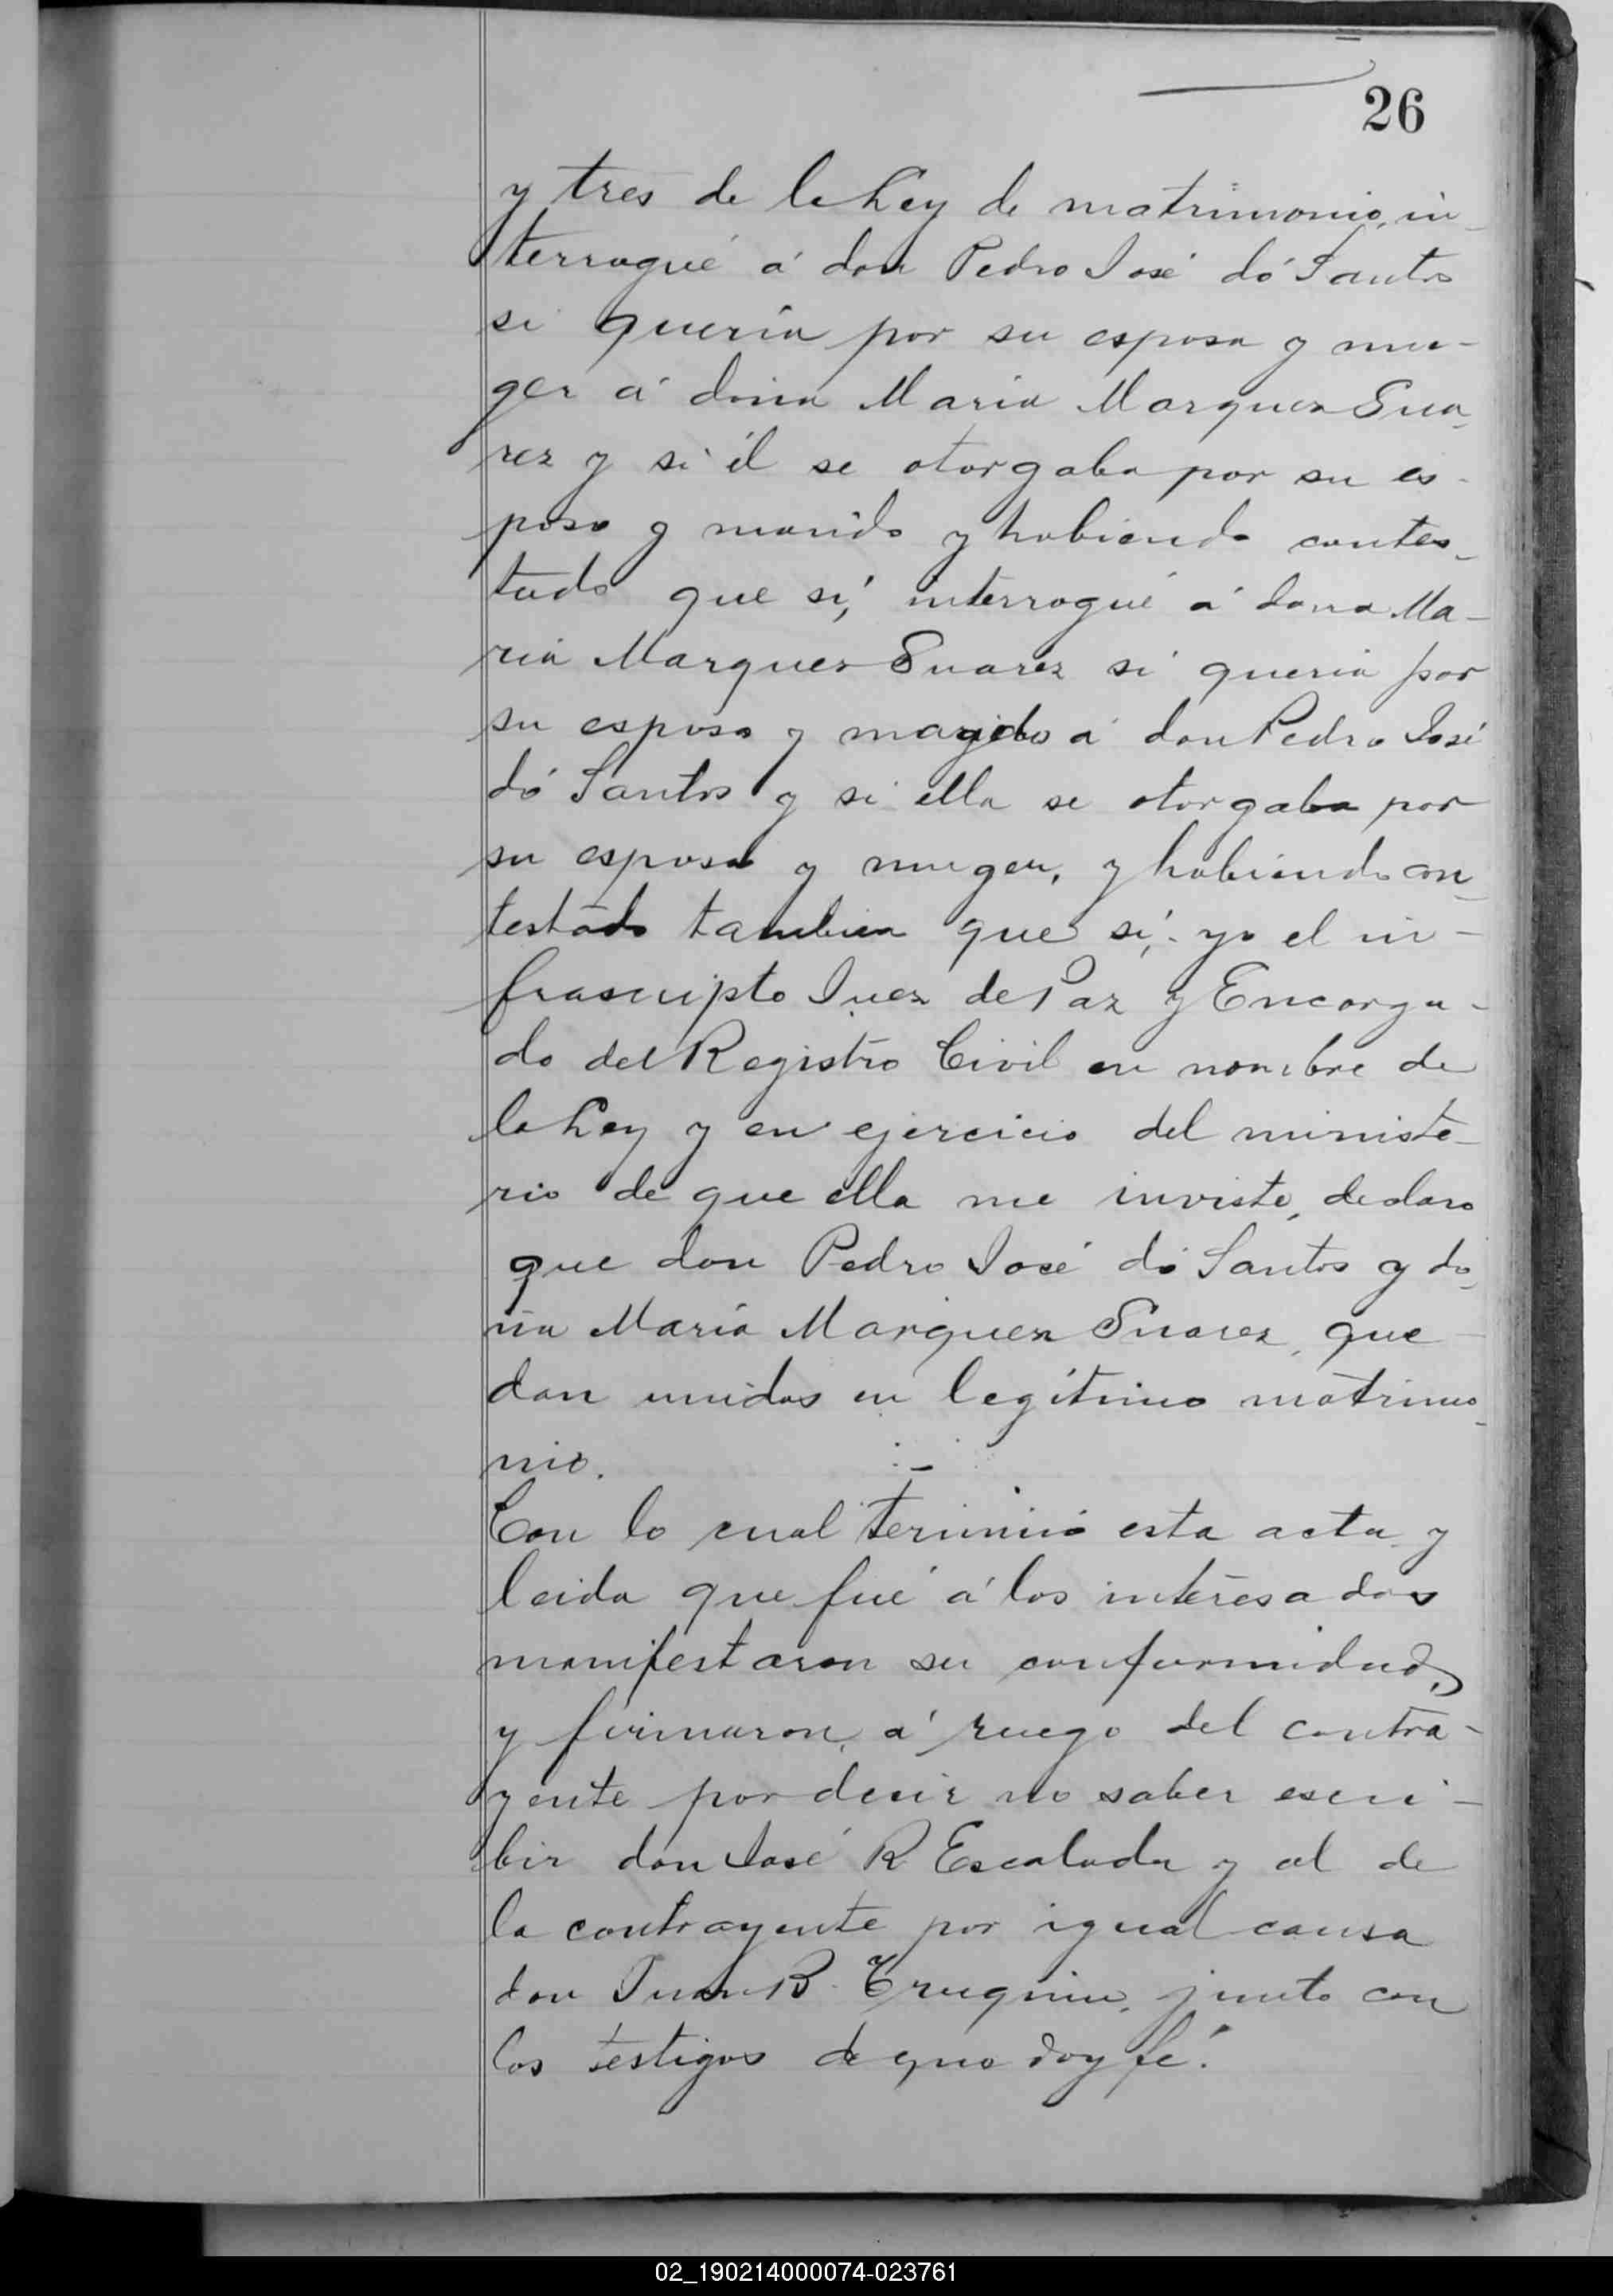 26
y tres de la Ley de matrimonio, in-
terrogué á don Pedro José dó Santos
si quería por su esposa y mu-
ger á doña María Marquez Sua-
rez y si él se otorgaba por su es-
poso y marido y habiendo contes-
tado que sí, interrogué á doña Ma-
ría Marquez Suarez si quería por
su esposo y marido á don Pedro José
dó Santos y si ella se otorgaba por
su esposa y muger, y habiendo con-
testado tambien que sí; yo el in-
frascripto Juez de Paz y Encarga-
do del Registro Civil en nombre de
la Ley y en ejercicio del ministe-
rio de que ella me inviste, declaro
que don Pedro José dó Santos y do-
ña María Marquez Suarez, que
dan unidos en legítimo matrimo-
nio.
Con lo cual terminó esta acta y
leida que fué á los interesados
manifestaron su conformidad,
y firmaron, á ruego del contra-
yente por decir no saber escri-
bir don José R Escalada y al de
la contrayente por igual causa
don Juan B. junto con
los testigos de que doy fé.
02_190214000074-023761